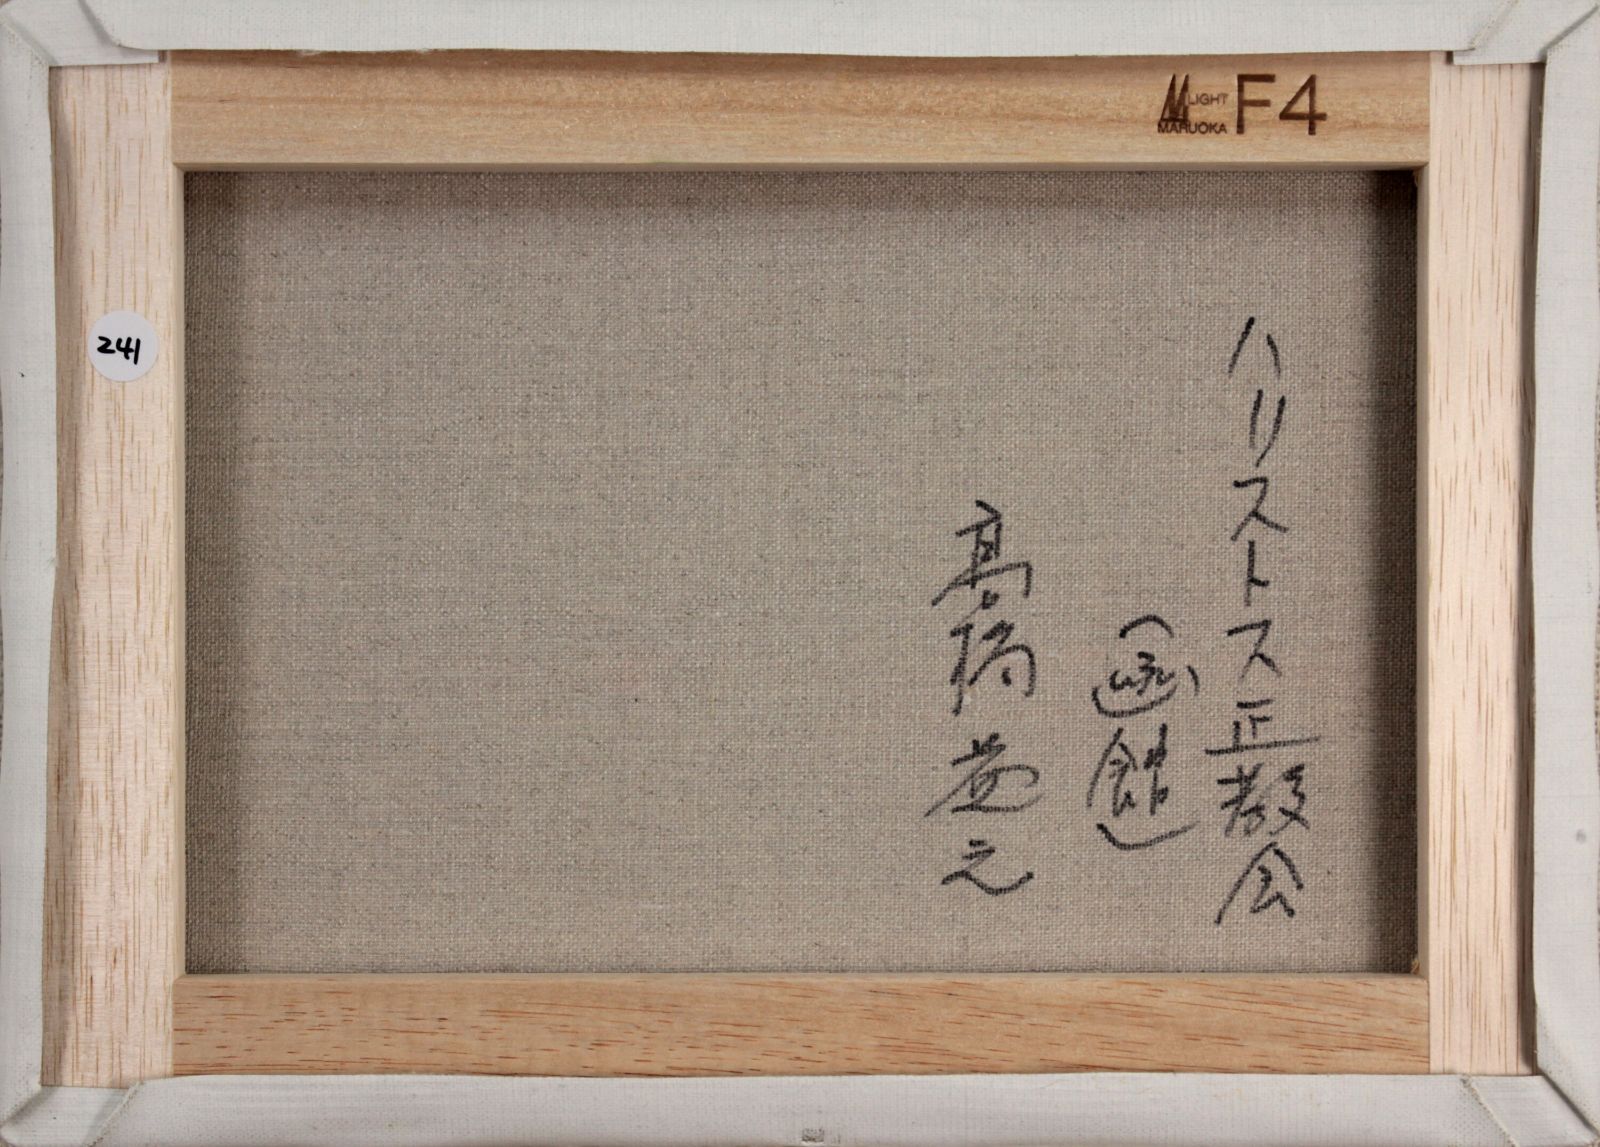 LIGHT
MARUOKA
F4
241
ハリストス正教会
(函館)
高橋益之